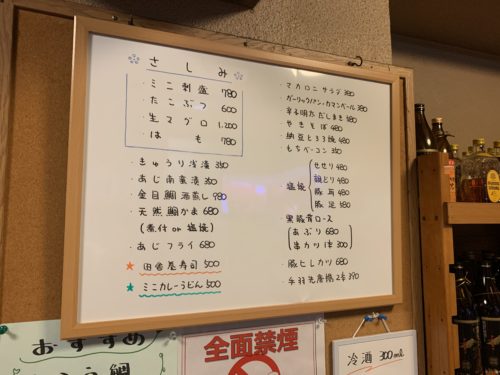 さしみ
・ミニ刺盛 780
・たこぶつ 600
・生マグロ 1.200
・はも 780
・きゅうり浅漬 350
・あじ南蛮漬 350
・金目鯛酒蒸し 980
・天然鯛かま 680
(煮付 or 塩焼)
・あじフライ 680
★ 田舎巻寿司 500
★ ミニカレーうどん 500
・マカロニサラダ 380
ガーリックパン・カマンベール 380
・辛子明方だしまき 580
・やきそば 480
・納豆とろろ焼 480
・もちベーコン 350
・塩焼
せせり 480
親どり 480
豚耳 480
豚足 580
黒豚肩ロース
あぶり 680
串カツ1本 300
・豚ヒレカツ 680
・手羽先唐揚2本 390
おすすめ
全面禁煙
冷酒 300ml